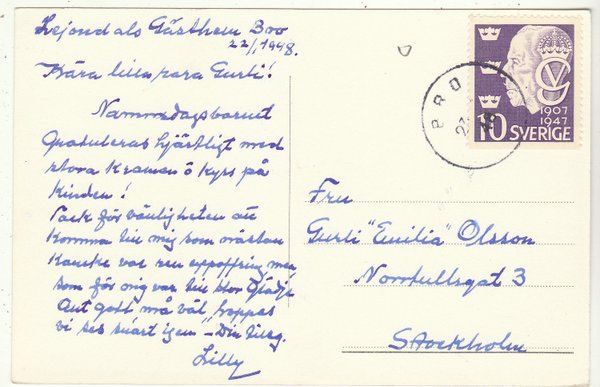 Lejondals Gästhem Bro
22/1 1948.
Kära lilla rara Gurli!
Namnsdagsbarnet
Gratuleras hjärtligt med
stora Kramen ö kyss på
kinden!
Tack för vänligheten att
komma till mig som nästan
Kanske var en uppoffring men
som för mig var till stor Glädje
Allt gott må väl, hoppas
vi ses snart igen - Din tillg.
Lilly
BRO
22
SVERIGE
1907
1947
10
Fru
Gurli "Emilia" Olsson
Norrtullsgat 3
Stockholm